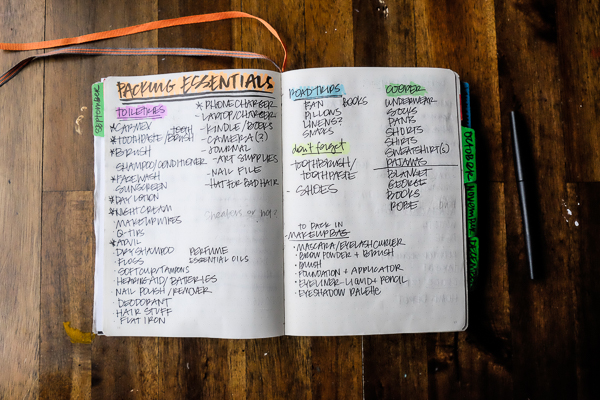 SEPTEMBER
PACKING ESSENTIALS
TOILETRIES
*CARMEX
*TOOTHPASTE/BRUSH
TOOTH
*BRUSH
SHAMPOO/CONDITIONER
*FACEWASH
SUNSCREEN
*DAY LOTION
*NIGHT CREAM
MAKEUP WIPES
Q-TIPS
*ADVIL
DRY SHAMPOO
FLOSS
SOFTCUP/TAMPONS
HEARING AID/BATTERIES
NAIL POLISH/REMOVER
DEODORANT
HAIR STUFF
FLAT IRON
PERFUME
ESSENTIAL OILS
*PHONE CHARGER
-LAPTOP/CHARGER
-KINDLE/BOOKS
-CAMERA(?)
-JOURNAL
-ART SUPPLIES
-NAIL FILE
-HAT FOR BAD HAIR
ROAD TRIPS
BOOKS
PILLOWS
LINENS?
SNACKS
don't forget
TOOTHBRUSH/
TOOTHPASTE
- SHOES
COOPER
UNDERWEAR
SOCKS
PANTS
SHORTS
SHIRTS
SWEATSHIRT(S)
PAJAMAS
BLANKET
GEORGE
BOOKS
ROBE
TO PACK IN
-MAKEUP BAG
• MASCARA/EYELASH CURLER
• BROW POWDER + BRUSH
• BLUSH
• FOUNDATION + APPLICATOR
• EYELINER-LIQUID + PENCIL
• EYESHADOW PALETTE
OCTOBER
NOVEMBER